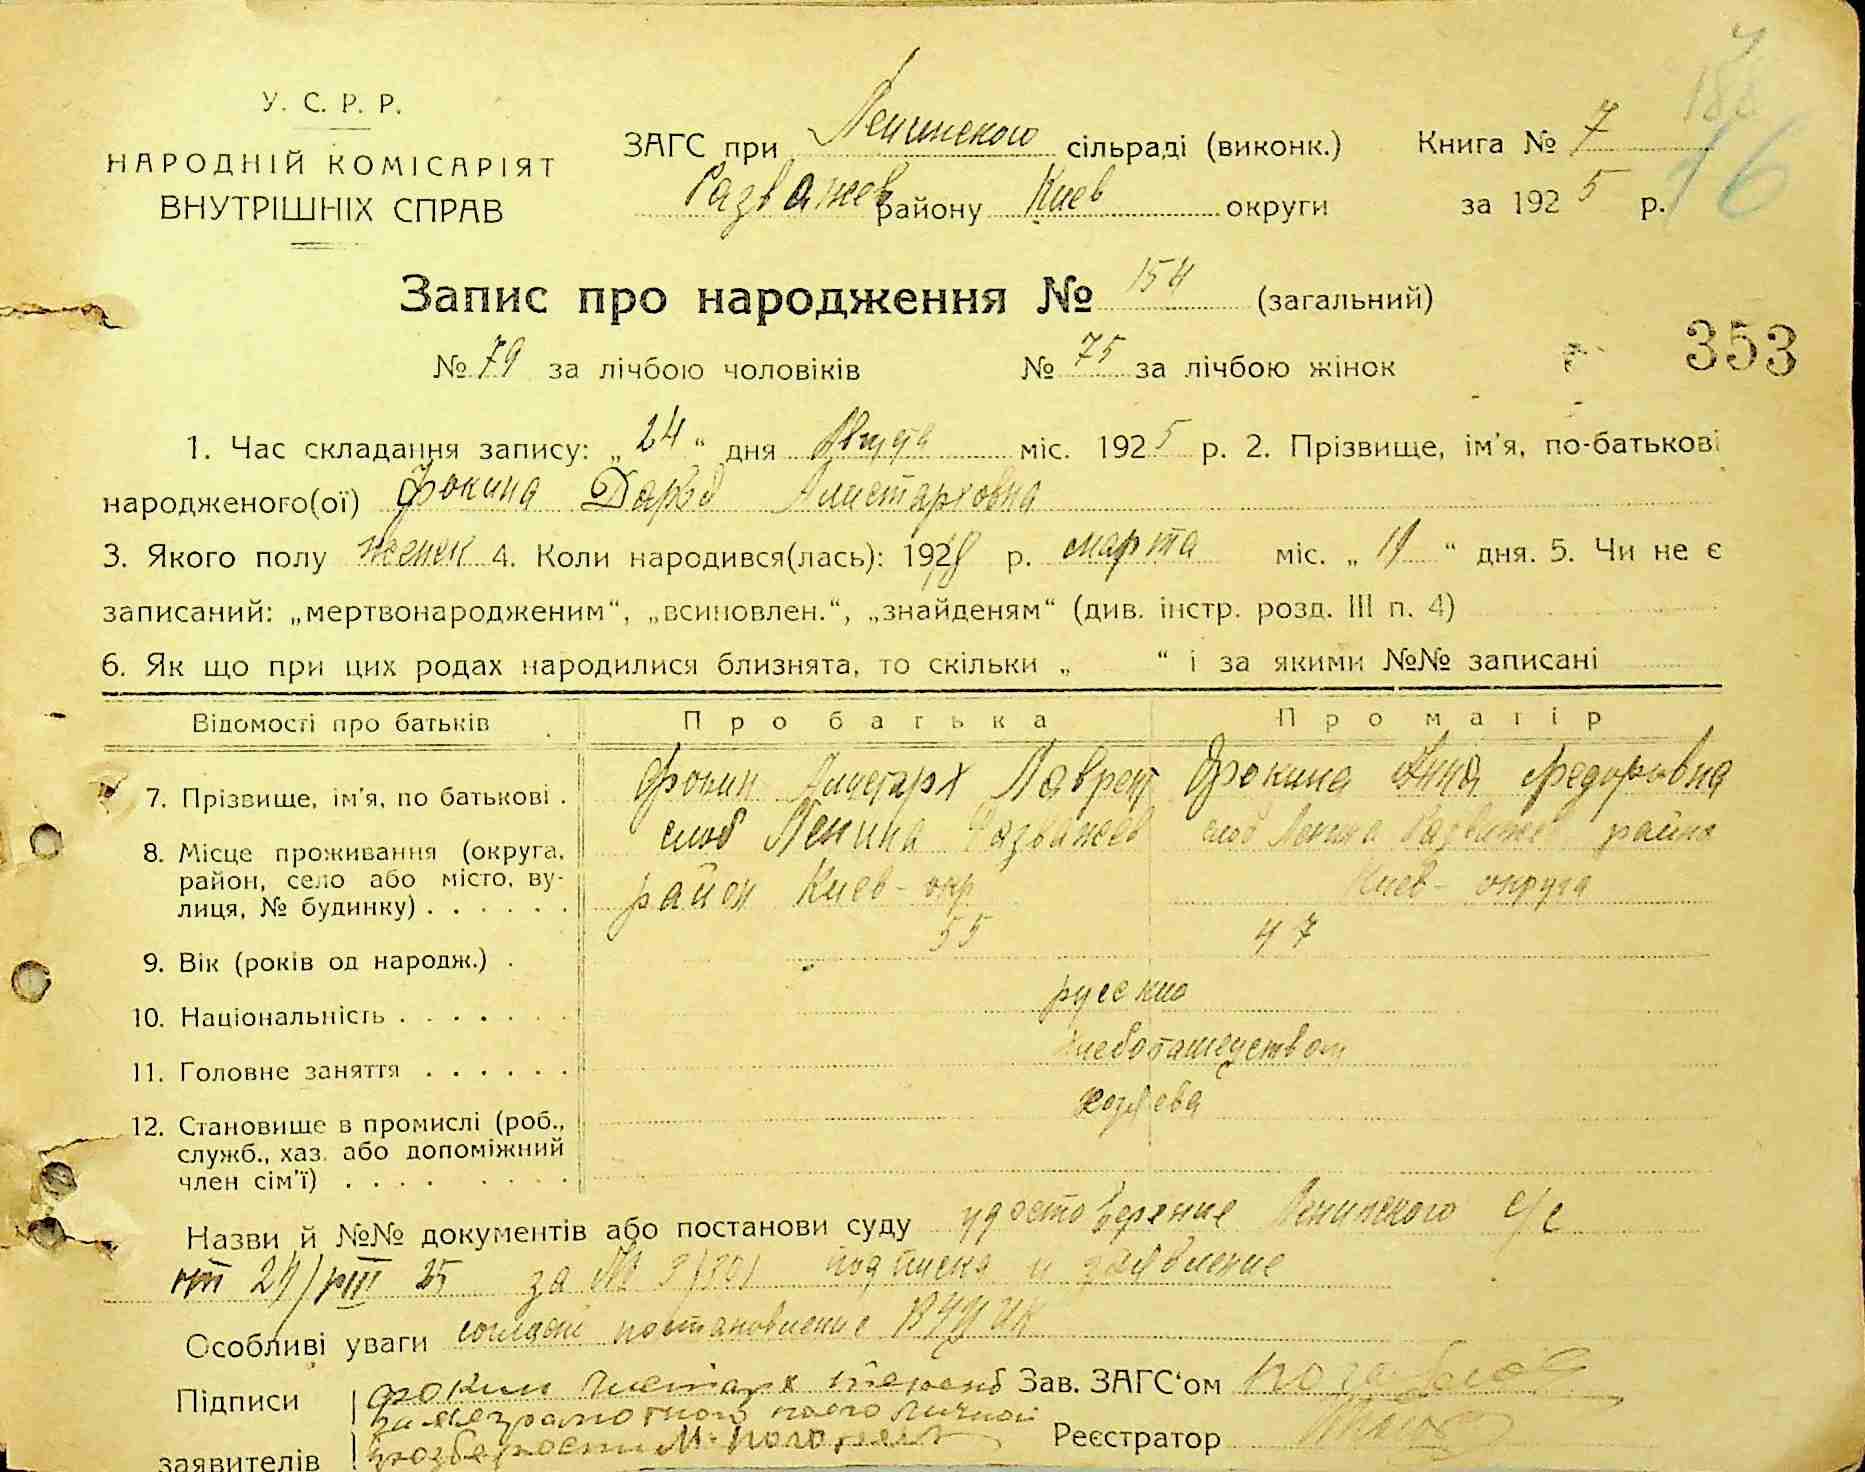 У. С. Р. Р.
НАРОДНІЙ КОМІСАРІЯТ
ВНУТРІШНІХ СПРАВ
ЗАГС при Ленинского сільраді (виконк.) Книга № 7
Розважев району Киев округи за 1925 р.
16
Запис про народження № 154 (загальний)
№ 79 за лічбою чоловіків № 75 за лічбою жінок
353
1. Час складання запису: „24“ дня Августа міс. 1925 р. 2. Прізвище, ім'я, по-батькові
народженого(ої) Фокина Дарья Аристарховна
3. Якого полу женск 4. Коли народився(лась): 1918 р. марта міс. „19“ дня. 5. Чи не є
записаний: „мертвонародженим“, „всиновлен.“, „знайденям“ (див. інстр. розд. III п. 4)
6. Як що при цих родах народилися близнята, то скільки „ “ і за якими №№ записані
Відомості про батьків Про батька Про матір
7. Прізвище, ім'я, по батькові . Фокин Аристарх Лаврент Фокина Анна Федоровна
8. Місце проживання (округа, район, село або місто, вулиця, № будинку) . . . . . .
слоб Ленина Розважев район Киев-окр
слоб Ленина Розважев района Киев- округа
9. Вік (років од народж.) . 55 47
10. Національність . . . . . . . русские
11. Головне заняття . . . . . . хлебопашеством
12. Становище в промислі (роб., служб., хаз. або допоміжний член сім'ї) . . . . . . . . хозяева
Назви й №№ документів або постанови суду удостоверение Ленинского с/с
от 24/VIII 25 за № подписка и заявление
Особливі уваги согласн постановление ВУЦИК
Підписи Фокин Зав. ЗАГС'ом
за неграмотного его личной
заявителів просьбе Реєстратор